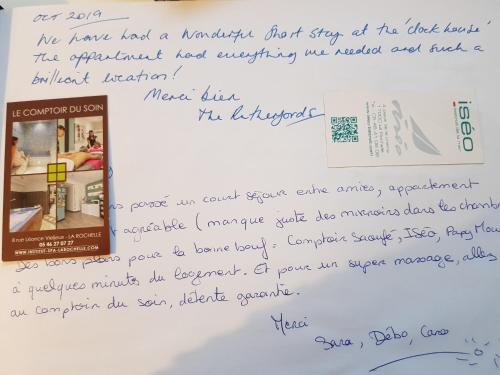 OCT 2019
We have had a Wonderful Short Stay at the 'clock house'
the appartment had everything we needed and such a
brillient location!
Merci bien
The Rutherfords
LE COMPTOIR DU SOIN
8 rue Léonce Vieljeux - LA ROCHELLE
05 46 27 07 27
WWW.INSTITUT-SPA-LAROCHELLE.COM
iséo
passé un court séjour entre amies, appartement
agréable (manque juste des miroirs dans les chambr
Des bons plans pour la bonne bouf : Comptoir Saoufé, ISéo, Papy Mou
à quelques minutes du logement. Et pour un super massage, allez
au comptoir du soin, détente garantie.
Merci
Sara, Débo, Caro